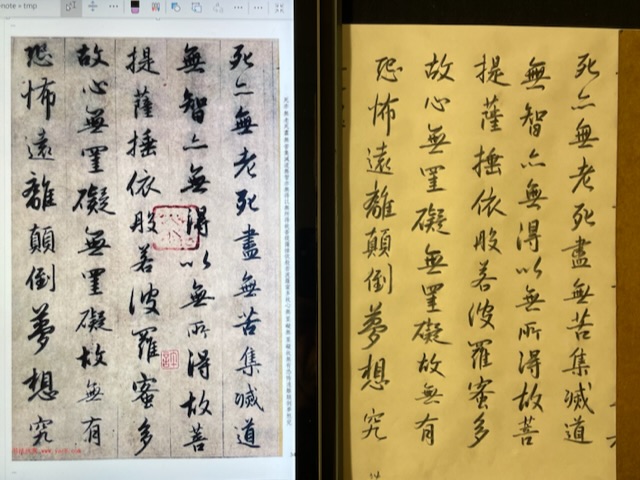 note » tmp
死亦無老死盡無苦集滅道
無智亦無得以無所得故菩
提薩埵依般若波羅蜜多
故心無罣礙無罣礙故無有
恐怖遠離顛倒夢想究
死亦無老死盡無苦集滅道
無智亦無得以無所得故菩
提薩埵依般若波羅蜜多
故心無罣礙無罣礙故無有
恐怖遠離顛倒夢想究